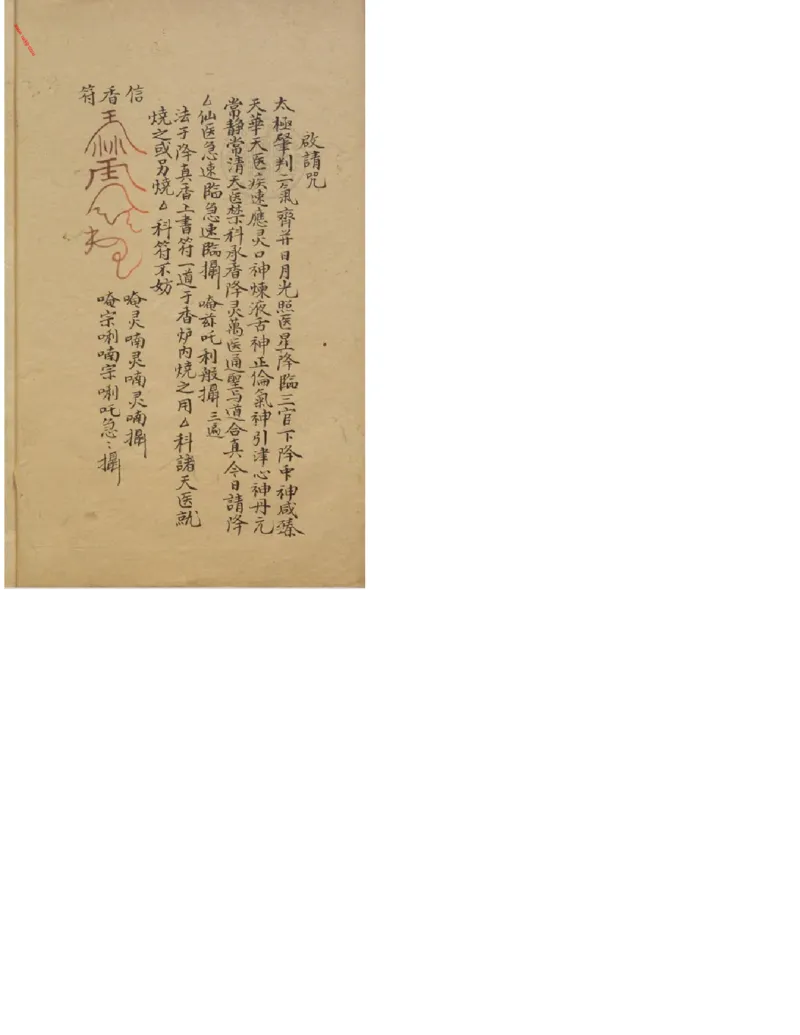 啟請咒
太極肇判二氣齊并日月光照医星降臨三官下降中神咸臻
天華天医疾速應灵口神煉液舌神正倫氣神引津心神丹元
常静常清天医禁科承香降灵萬医通聖与道合真今日請降
△仙医急速臨急速臨攝 唵茲吒利般攝 三遍
法于降真香上書符一道于香炉内燒之用△科諸天医就
燒之或另燒△科符不妨
信香符
唵灵喃灵喃灵喃攝
唵宗唎喃宗唎吒急〻攝